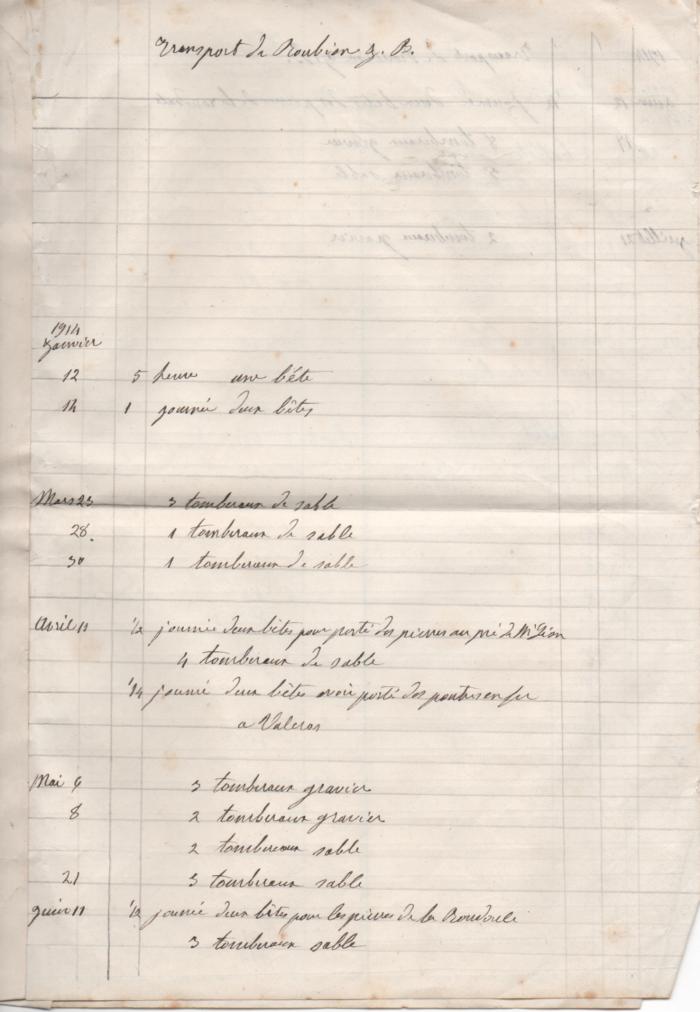 Transport de Roubion J. B.
1914
Janvier
12 5 heure une bête
14 1 journé deux bêtes
Mars 23 3 tombereaux de sable
28. 1 tombereaux de sable
30 1 tombereaux de sable
Avril 11 1/2 journée deux bêtes pour porté des pierres au pré de Mr
4 tombereaux de sable
1/4 journé deux bêtes avoir porté des poutres en fer
a Valeros
Mai 6 3 tombereaux gravier
8 2 tombereaux gravier
2 tombereaux sable
21 3 tombereaux sable
Juin 11 1/2 journé deux bêtes pour les pierres de la Roudoule
3 tombereaux sable